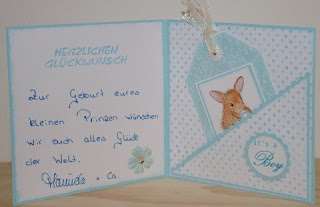 HERZLICHEN
GLÜCKWUNSCH
Zur Geburt eures
kleinen Prinzen wünschen
wir euch alles Glück
der Welt.
+ Co.
It's a
Boy